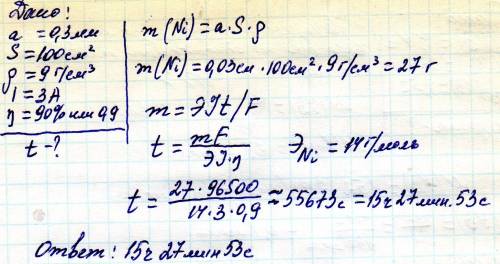 Дано:
a = 0,3 мм
S = 100 см²
ρ = 9 г/см³
I = 3 А
η = 90% или 0,9
t - ?
m (Ni) = a · S · ρ
m (Ni) = 0,03 см · 100 см² · 9 г/см³ = 27 г
m = ЭIt/F
t = mF / ЭI·η Э Ni = 14 г/моль
t = 27 · 96500 / 14 · 3 · 0,9 ≈ 55673 с = 15ч 27 мин. 53с
Ответ: 15ч 27 мин 53с